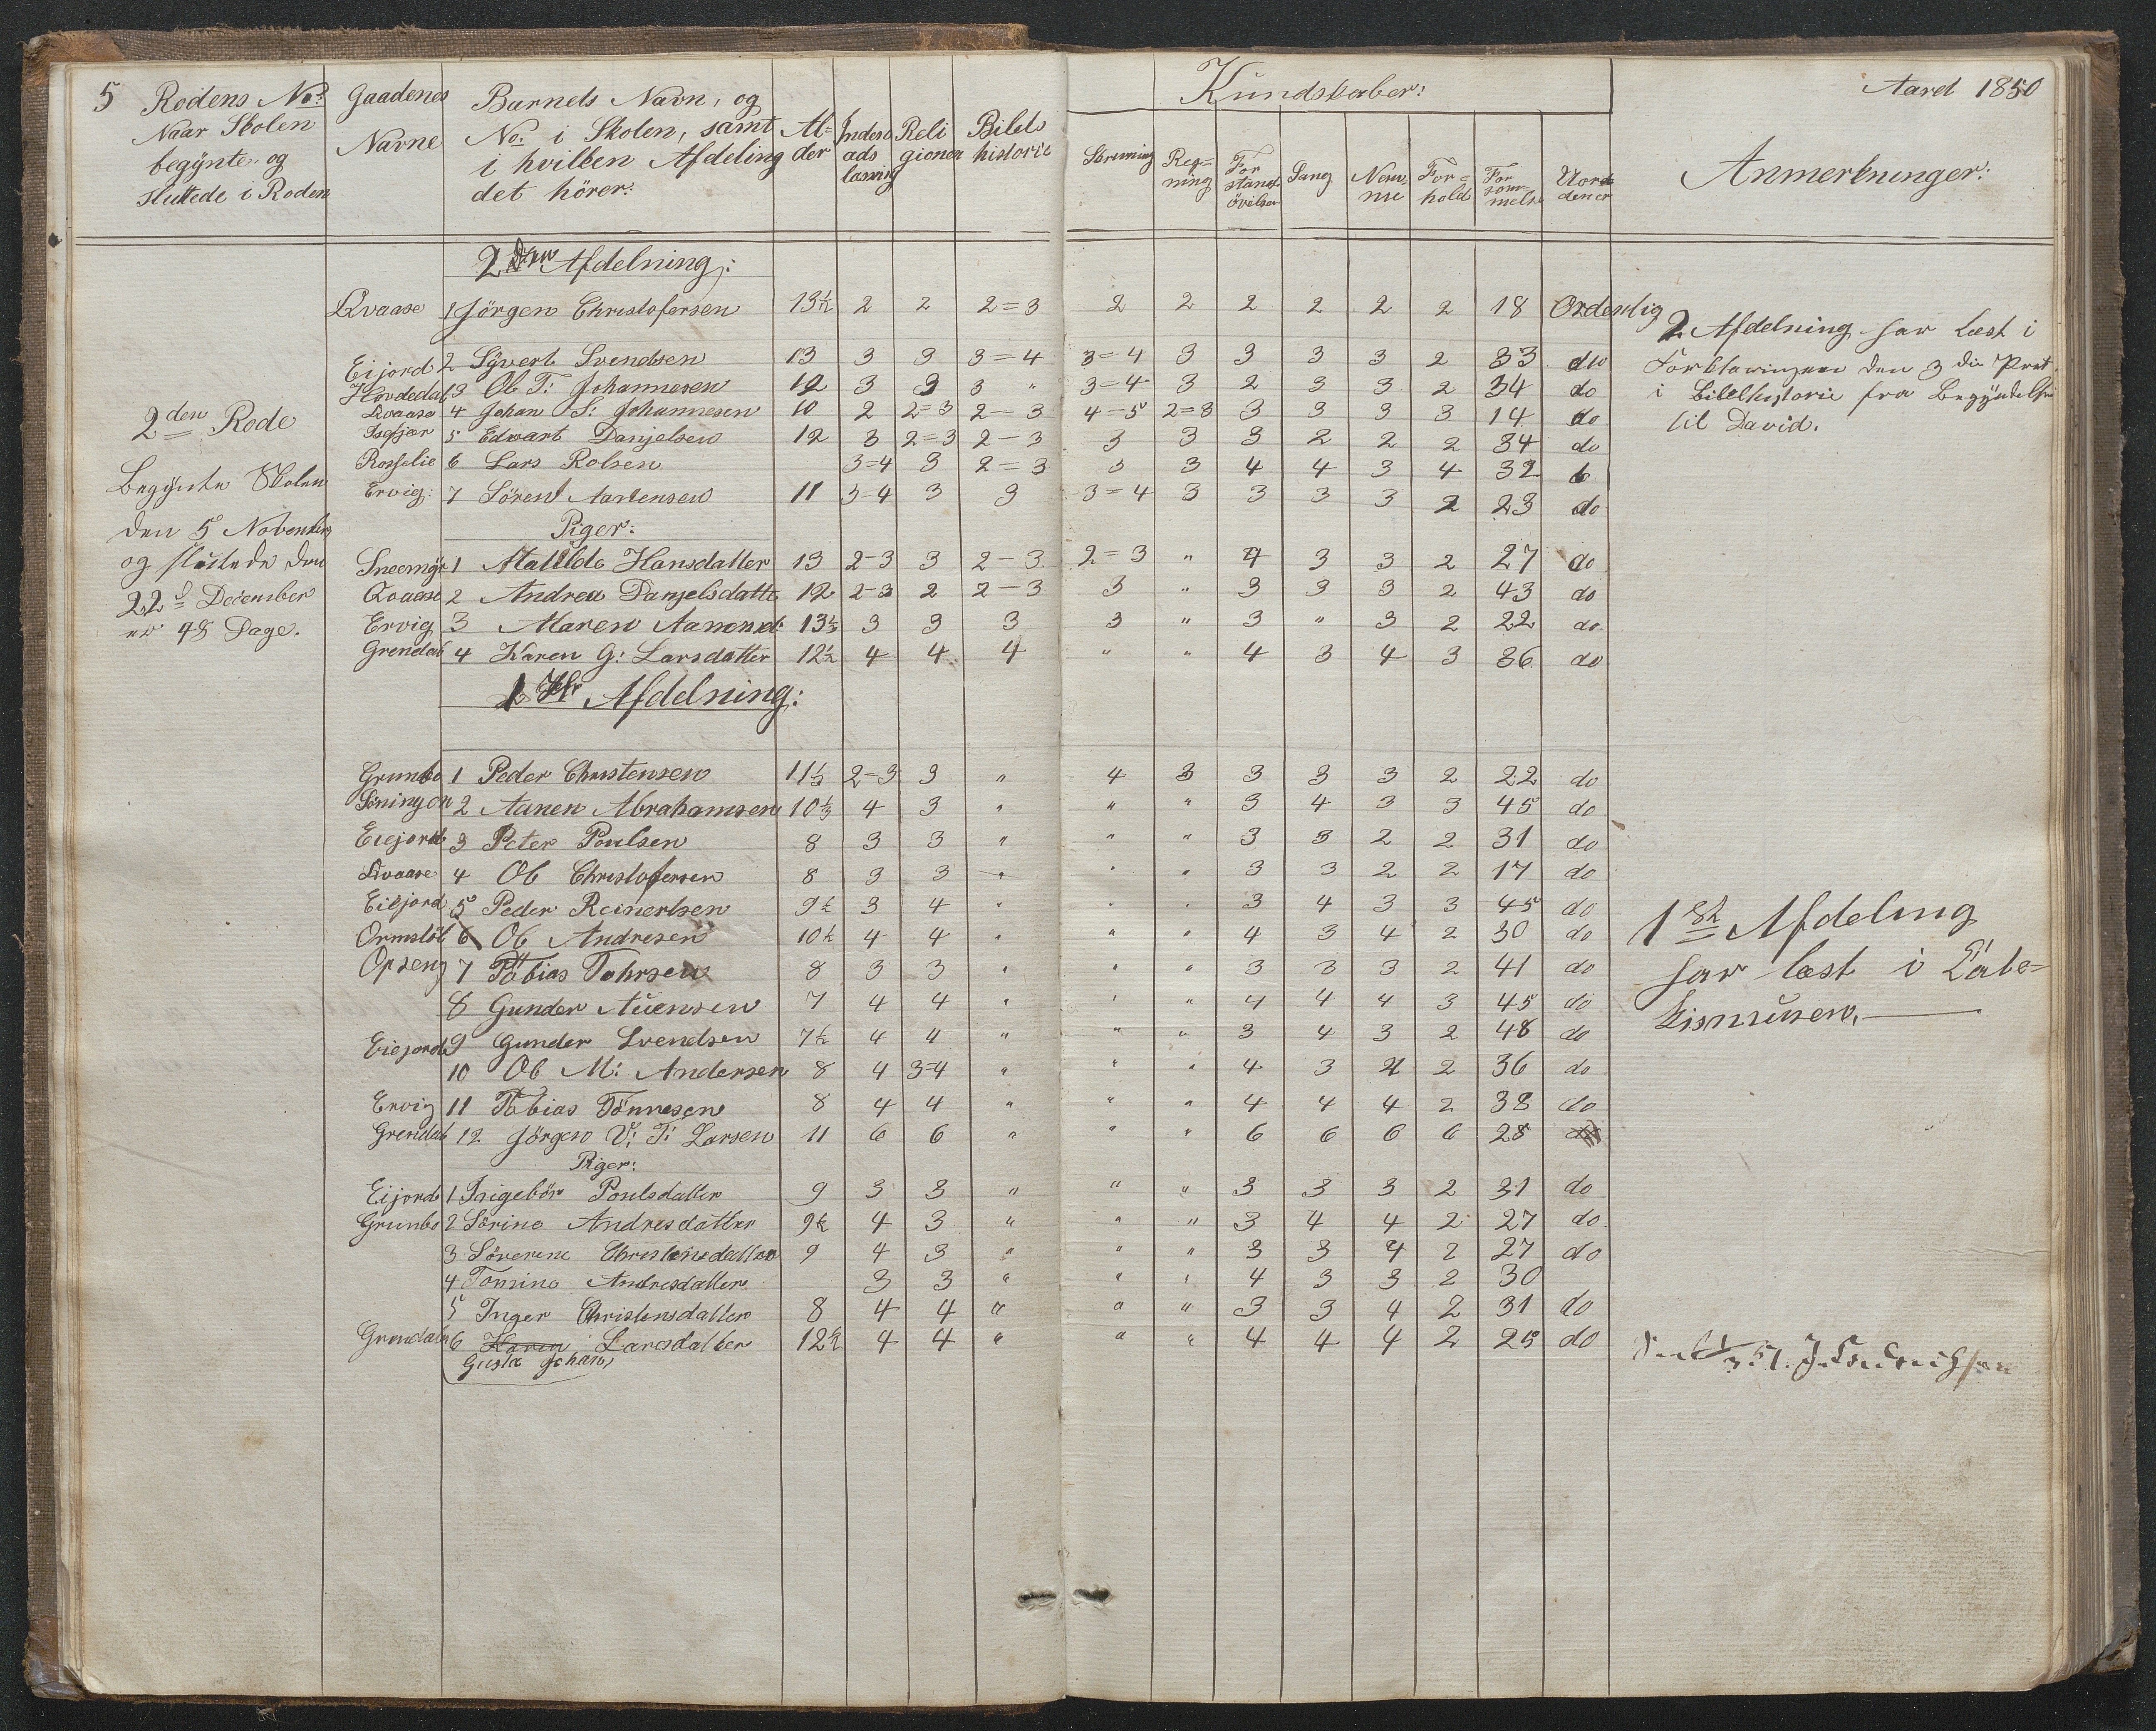 5 Rodens No: Gaadenes Barnets Navn, og Kundskaber: Aaret 1850
Naar Skolen Navne No. i Skolen, samt Al= Indenads Reli Bibels Skrivning Reg= For Sang Nem= For= For Uor Anmerkninger:
begÿnte og i hvilken Afdeling der læsning gionen historie ning stands me hold søm dener
sluttede i Roden det hörer: övelser melse
2den Afdelning:
Qvaase 1 Jörgen Christofersen 13½ 2 2 2=3 2 2 2 2 2 2 18 Ordenlig
Eijord 2 Sÿvert Svendsen 13 3 3 3=4 3=4 3 3 3 3 2 33 do
Hövdedal 3 Ol T: Johannesen 12 3 3 3 " 3=4 3 2 3 3 2 34 do
Qvaase 4 Johan S: Johannesen 10 2 2=3 2-3 4-5 2=3 3 3 3 3 14 do
5 Edvart Danjelsen 12 3 2=3 2-3 3 3 3 2 2 2 34 do
Rosselie 6 Lars Rolsen 3=4 3 2=3 3 3 4 4 3 4 32
Ervig: 7 Sören Aanensen 11 3-4 3 3 3=4 3 3 3 3 2 23 do
Piger:
1 Matilde Hansdatter 13 2-3 3 2-3 2=3 " 4 3 3 2 27 do
Qvaase 2 Andrea Danjelsdatte 12 2-3 2 2-3 3 " 3 3 3 2 43 do
Ervig 3 Maren Aanensd: 13⅓ 3 3 3 3 " 3 " 3 2 22 do
Grendal 4 Karen G: Larsdatter 12½ 4 4 4 " " 4 3 4 3 36 do
2den Rode
Begÿnte Skolen
den 5 November
og sluttede den
22 December
er 48 Dage.
2 Afdelning har læst i
Forklaringen den 3die Part
i Bibelhistorie fra Begÿndelsen
til David.
1ste Afdelning:
Grunbo 1 Peder Christensen 11⅓ 2-3 3 " 4 3 3 3 3 2 22 do
2 Aanen Abrahamsen 10⅓ 4 3 " " " 3 4 3 3 45 do
Eiejord 3 Peter Poulsen 8 3 3 " " " 3 3 2 2 31 do
Qvaase 4 Ol Christofersen 8 3 3 " " " 3 3 2 2 17 do
Eiejord 5 Peder Reinertsen 9½ 3 4 " " " 3 4 3 3 45 do
Ormslöl 6 Ol Andresen 10½ 4 4 " " " 4 3 4 2 30 do
Opseng 7 Tobias Tohrsen 8 3 3 " " " 3 3 3 2 41 do
8 Gunder Auensen 7 4 4 " " " 4 4 4 3 45 do
Eiejord 9 Gunder Svendsen 7½ 4 4 " " " 3 4 3 2 48 do
10 Ol M: Andersen 8 4 3=4 " " " 4 3 4 2 36 do
Ervig 11 Tobias Tönnesen 8 4 4 " " " 4 4 4 2 38 do
Grendal 12 Jörgen V: T: Larsen 11 6 6 " " " 6 6 6 6 28
Piger:
Eijord 1 Ingebör Poulsdatter 9 3 3 " " " 3 3 3 2 31 do
Grunbo 2 Sörine Andresdatter 9½ 4 3 " " " 3 4 4 2 27 do
3 Söverine Christensdatter 9 4 3 " " " 3 3 4 2 27 do
4 Tomine Andresdatter 3 3 " " " 4 3 3 2 30
5 Inger Christensdatter 8 4 4 " " " 3 3 4 2 31 do
Grendal 6 Karen Larsdatter 12½ 4 4 " " " 4 4 4 2 25 do
Gusta Johan
1ste Afdeling
har læst i Cate=
kismusen.